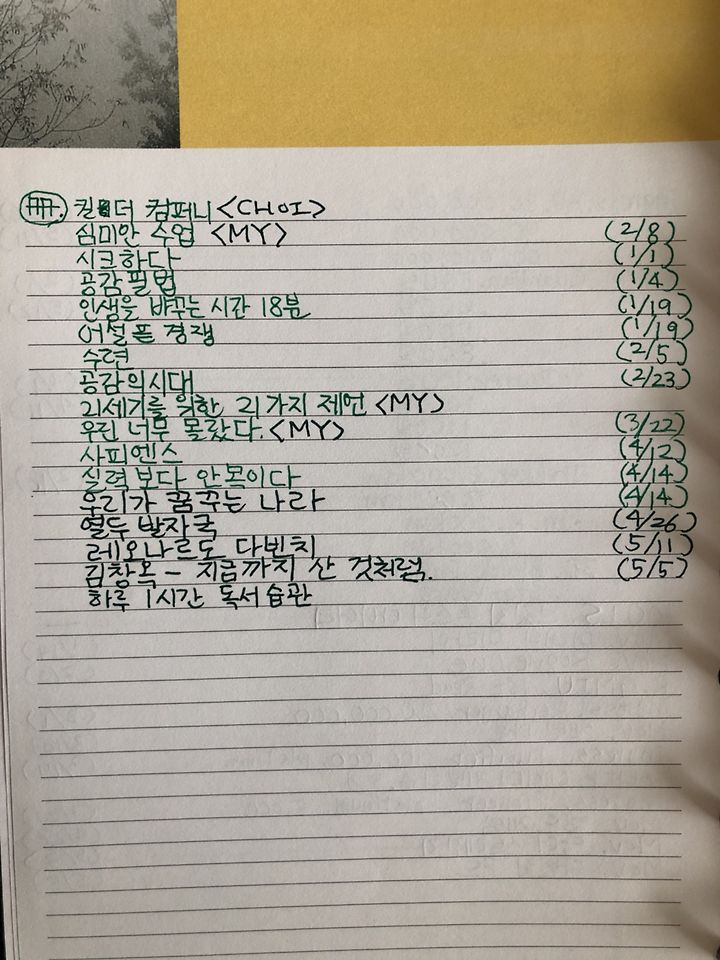 冊. 킬더 컴퍼니 <CHOI>
심미안 수업 <MY> (2/8)
시크하다 (1/1)
공감필법 (1/4)
인생을 바꾸는 시간 18분 (1/19)
어설픈 경쟁 (1/19)
수련 (2/5)
공감의시대 (2/23)
21세기를 위한 21가지 제언 <MY>
우린 너무 몰랐다. <MY> (3/22)
사피엔스 (4/12)
실력보다 안목이다 (4/14)
우리가 꿈꾸는 나라 (4/14)
열두 발자국 (4/26)
레오나르도 다빈치 (5/11)
김창옥 - 지금까지 산 것처럼. (5/5)
하루 1시간 독서습관